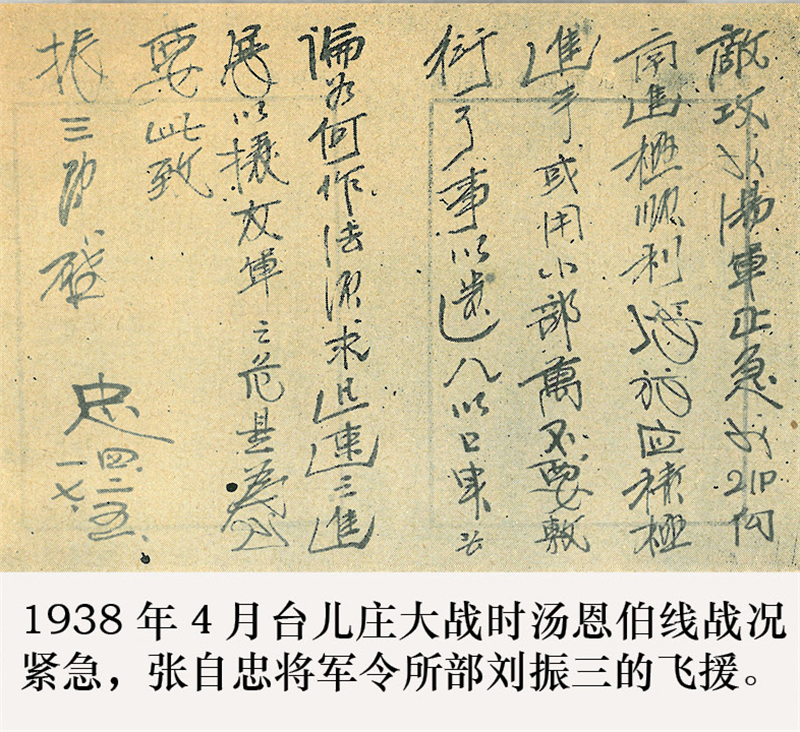 敵攻湯軍正急
南進極順利 旅应積極
進 或用小部萬不要敷
衍了事以遗人以口
論如何作法須求迅速之進
展以援友軍之危是為
要此致
振三
忠
四.二五.
一七.
1938 年 4 月台儿庄大战时汤恩伯线战况
紧急，张自忠将军令所部刘振三的飞援。